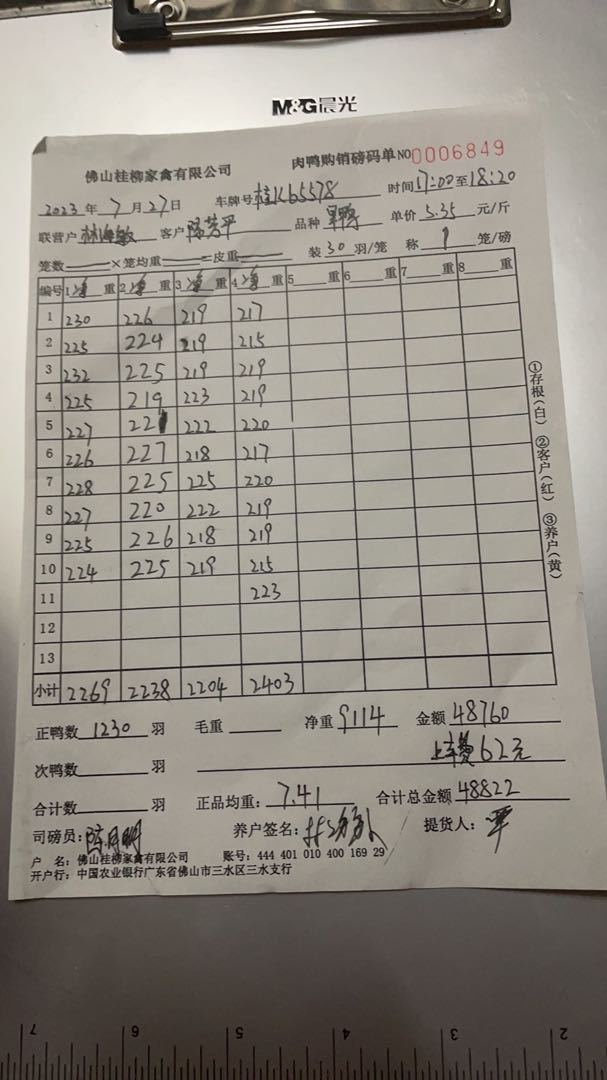 M&G晨光
佛山桂柳家禽有限公司 肉鸭购销磅码单 NO 0006849
2023年7月27日 车牌号 桂K65578 时间 17:00至18:20
联营户 林海敏 客户 陈芳平 品种 单价 5.35 元/斤
笼数 ×笼均重 =皮重 装30羽/笼 称 1 笼/磅
编号 1净重 2净重 3净重 4净重 5重 6重 7重 8重
1 230 226 219 217
2 225 224 219 215
3 232 225 219 219
4 225 219 223 219
5 227 221 222 220
6 226 227 218 217
7 228 225 225 220
8 227 220 222 219
9 225 226 218 219
10 224 225 219 215
11 223
12
13
小计 2269 2238 2204 2403
①存根(白) ②客户(红) ③养户(黄)
正鸭数 1230 羽 毛重 净重 9114 金额 48760
上车费62元
次鸭数 羽
合计数 羽 正品均重: 7.41 合计总金额 48822
司磅员: 陈月明 养户签名: 提货人:
户 名: 佛山桂柳家禽有限公司 账号: 444 401 010 400 169 29
开户行: 中国农业银行广东省佛山市三水区三水支行
7 6 5 4 3 2